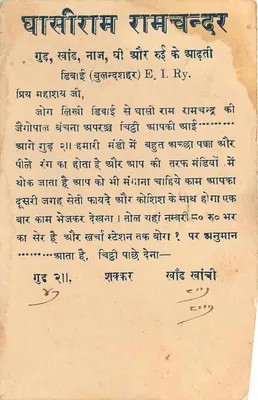 घासीराम रामचन्दर
गुड़, खांड, नाज, घी और रुई के आढ़ती
डिबाई (बुलन्दशहर) E. I. Ry.
प्रिय महाशय जी,
जोग लिखी डिबाई से घासी राम रामचन्द्र की
जैगोपाल बंचना अपरञ्च चिट्ठी आपकी आई
आगे गुड़ २॥ हमारी मंडी में बहुत अच्छा पक्का और
पीले रंग का होता है और आप की तरफ मंडियों में
थोक जाता है आप को भी मंगाना चाहिये काम आपका
दूसरी जगह सेती फायदे और कोशिश के साथ होगा एक
बार काम भेजकर देखना। तोल यहां नम्बरी ८० रु० भर
का सेर है और खर्चा स्टेशन तक बोरा १ पर अनुमान
आता है, चिट्ठी पाछे देना—
गुड़ २॥, शक्कर खाँड खांची